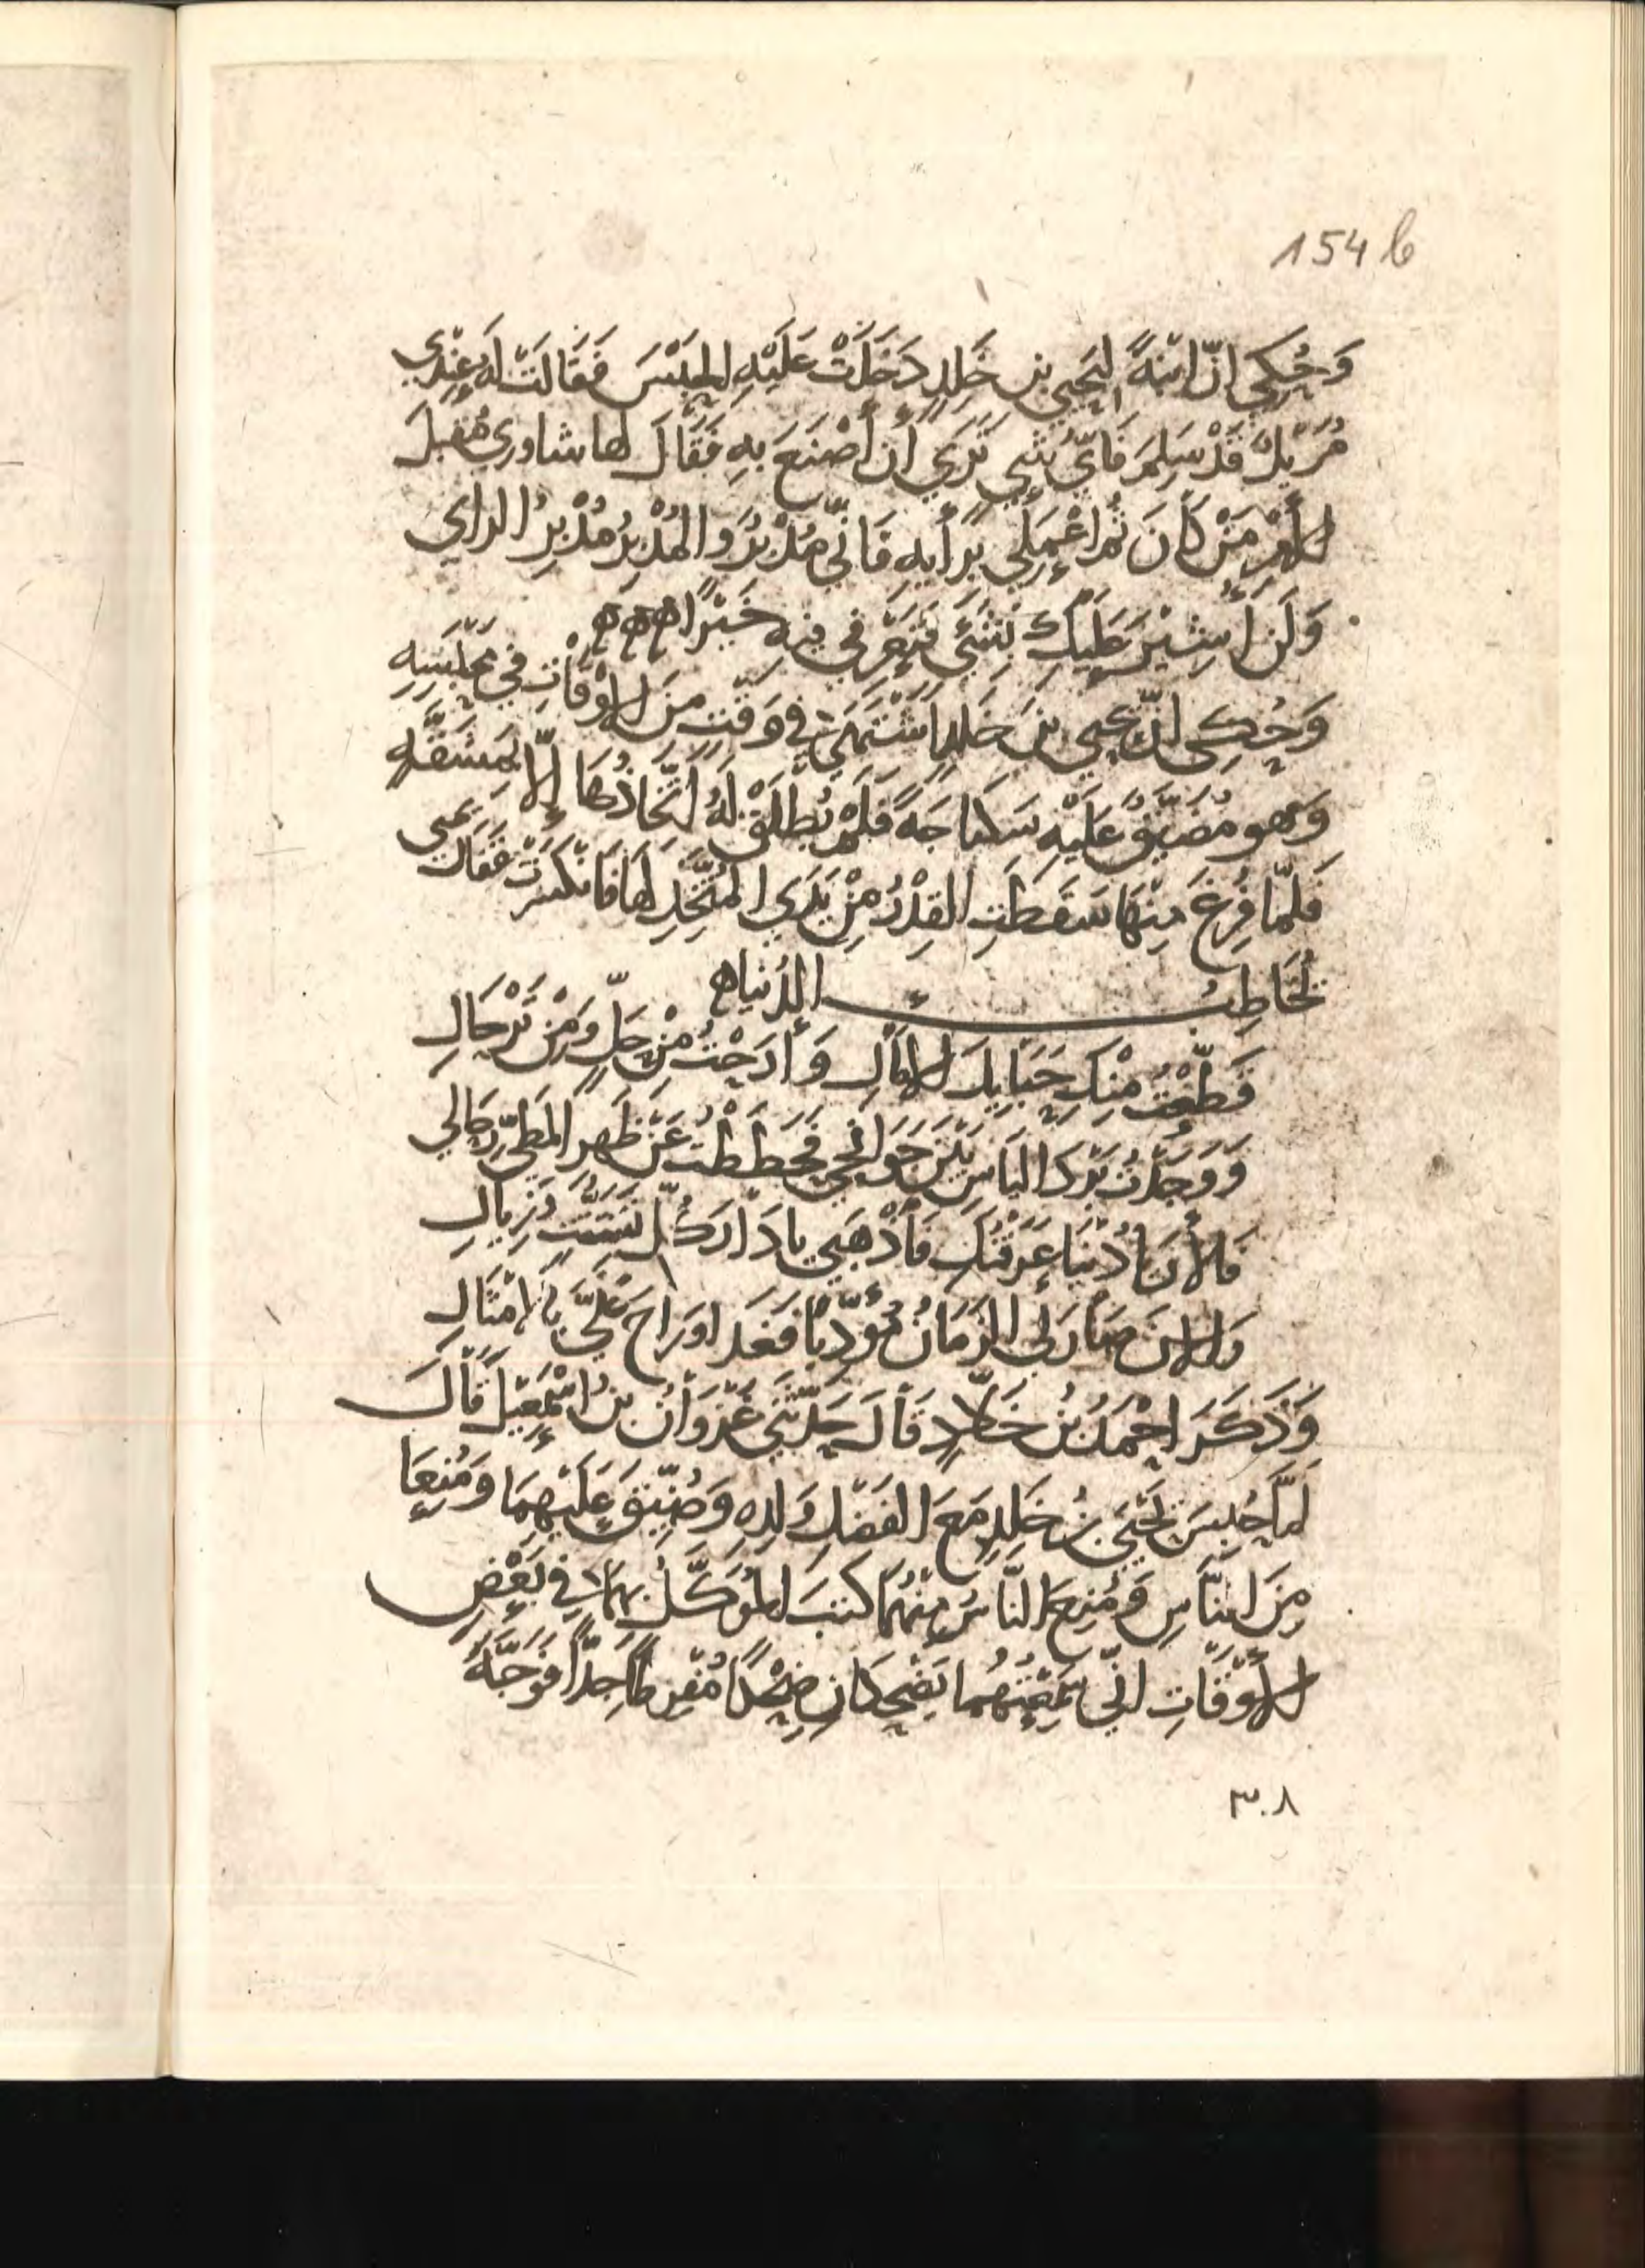 154 b
وَحُكِيَ انّ ابْنةً ليَحيي بن خَلِدٍ دَخَلَتْ عَلَيْهِ الحَبْسَ فَقَالَتْ لَهُ عِنْدِي
قَدْ سَلِمَ فَأيّ شَيٍ تَرَي أن أصْنَعَ بِهِ فَقَالَ لها شاوِرِي مُقْبِلَ
الأَمْرِ مَنْ كَانَ ثُمّ اعْمَلِي بِرَأيِهِ فَانّي مُدْبِرٌ وَالمُدْبِرُ مُدْبِرُ الرايِ
وَلَن أُشِيْرَ عَلَيْكِ بِشَيْءٍ فَتَرَيْ فيهِ خَيْرًا ه ه ه
وَحُكِي انّ يحيي بنَ خَلِدٍ اشْتَهَي في وَقْتٍ مِنَ الاوْقَاتِ في مَحْبِسِهِ
وَهو مُضَيَّقٌ عَلَيْهِ سكْبَاجَةً فَلَمْ يُطْلَقْ لَهُ اتّخَاذُهَا إلاّ بِمَشَقَّهٍ
فَلمّا فُرِغَ مِنْهَا سَقَطَتِ القِدْرُ مِنْ يَدَيِ المُتَّخِذِ لها فَانْكَسَرَتْ فَقَالَ يحيي
يُخَاطِبُ الدُنيا ه
قَطَعْتُ مِنْكِ حَبَايِلَ الامَالِ وَأرَحْتُ مِنْ حَلٍّ وَمِنْ تَرْحَالِ
وَوَجَدْتُ بَرْدَ اليَاسِ بَيْنَ جَوَانِحِي فَحَطَطْتُ عَنْ ظَهرِ المَطِيّ رِحَالي
فَالأنَ يا دُنْيَا عَرَفْتُكِ فَاذْهَبِي يا دَارَ كُلِّ تَشَتُّتٍ وَزِيالِ
وَالانَ صَارَ لي الزَمَانُ مُؤَدِّبًا فَغَدا وَرَاحَ عَلَيَّ بالامْثَالِ
وَذَكَرَ احْمَدُ بْنُ خَلاّدٍ قَالَ حَدّثَني غَزْوَانُ بنُ اسْمَعِيْلَ قَالَ
لمّا حُبِسَ يَحْيَي بنُ خَلِدٍ مَعَ الفَضْلِ وَلدِهِ وَضُيِّقَ عَلَيْهِمَا وَمُنِعَا
مِنَ النَّاسِ وَمُنِعَ النَّاسُ مِنْهُمَا كتَبَ المُوَكَّلُ بِهِمَا في بَعْضِ
الأوْقَاتِ انّي سَمِعْتُهُما يَضْحَكَانِ ضَحِكًا مُفْرِطًا جِدًّا فَوَجَّهَ
٣٠٨